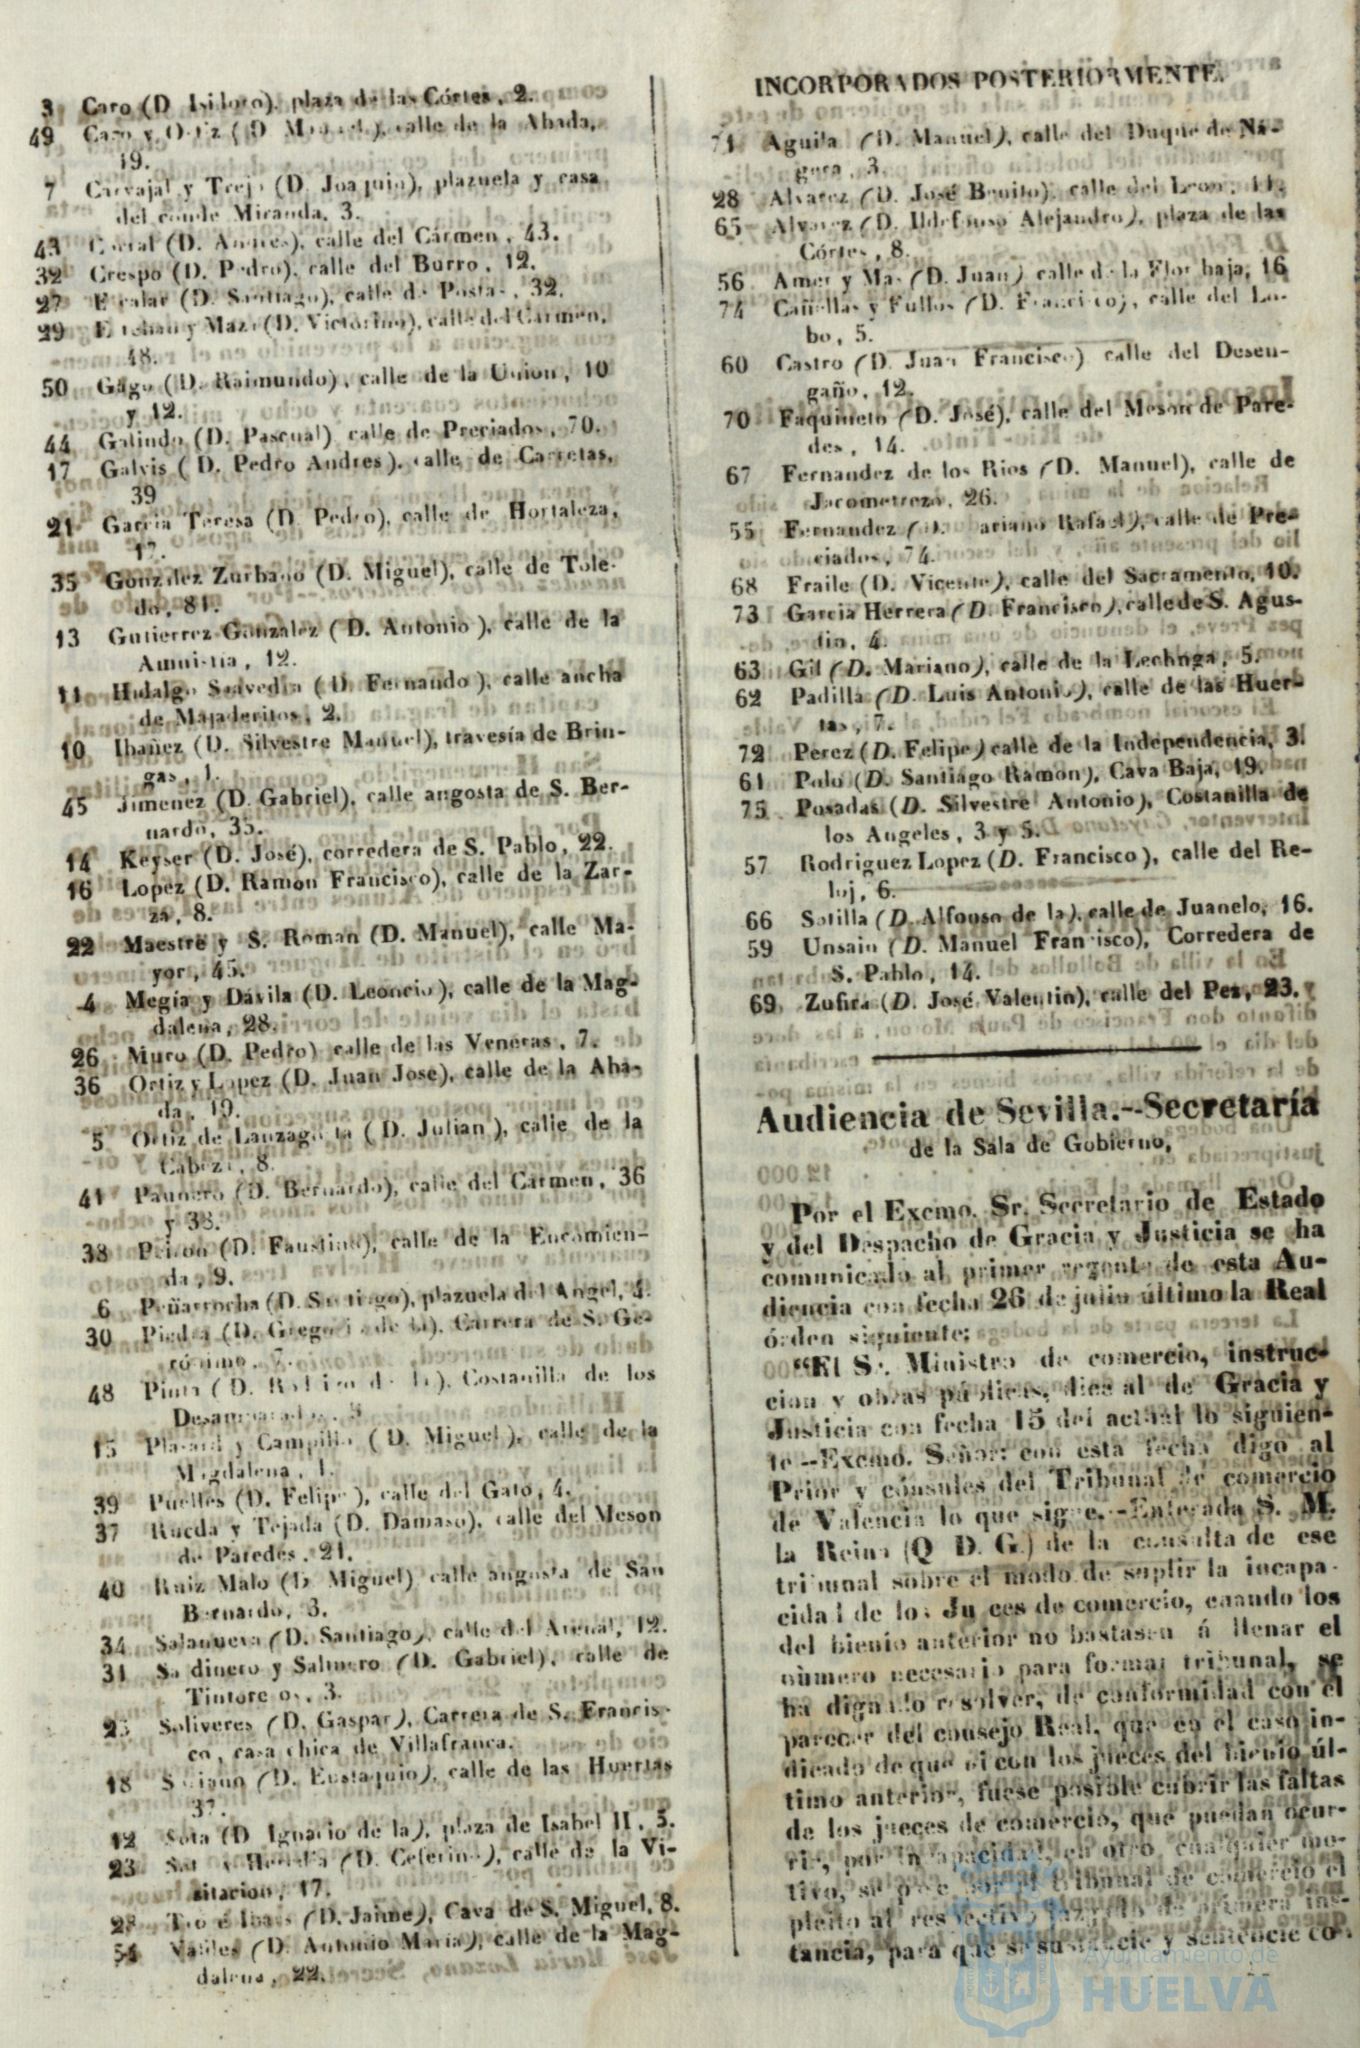 3 Caro (D. Isidoro), plaza de las Córtes, 2.
49 Caro y Ortiz (D. Manuel), calle de la Abada,
19.
7 Carvajal y Trejo (D. Joaquin), plazuela y casa
del conde Miranda, 3.
43 (D. Andres), calle del Cármen, 43.
32 Crespo (D. Pedro), calle del Burro, 12.
27 (D. Santiago), calle de Postas, 32.
29 Esteban y (D. Victorino), calle del Carmen,
48.
50 Gago (D. Raimundo), calle de la Union, 10
y 12.
44 Galindo (D. Pascual) calle de Preciados, 70.
17 Galvis (D. Pedro Andres), calle de Carretas,
39
21 Garcia Teresa (D. Pedro), calle de Hortaleza,
17.
35 Gonzalez Zurbano (D. Miguel), calle de Tole-
do, 81.
13 Gutierrez Gonzalez (D. Antonio), calle de la
Amnistía, 12.
11 Hidalgo Saavedra (D. Fernando), calle ancha
de Majaderitos, 2.
10 Ibañez (D. Silvestre Manuel), travesía de Brin-
gas, 1.
45 Jimenez (D. Gabriel), calle angosta de S. Ber-
nardo, 35.
14 Keyser (D. José), corredera de S. Pablo, 22.
16 Lopez (D. Ramon Francisco), calle de la Zar-
za, 8.
22 Maestre y S. Roman (D. Manuel), calle Ma-
yor, 45.
4 Megía y Dávila (D. Leoncio), calle de la Mag-
dalena, 28.
26 Muro (D. Pedro) calle de las Veneras, 7.
36 Ortiz y Lopez (D. Juan José), calle de la Aba-
da, 19.
5 Ortiz de Lanzagorta (D. Julian), calle de la
Cabeza, 8.
41 Paunero (D. Bernardo), calle del Cármen, 36
y 38.
38 (D. Faustino), calle de la Encomien-
da, 9.
6 Peñarrocha (D. Santiago), plazuela del Angel, 4.
30 Piedra (D. Gregorio de la), Carrera de S. Ge-
rónimo, 7.
48 (D. de la), Costanilla de los
Desamparados,
15 y Campillo (D. Miguel), calle de la
Magdalena, 1.
39 Puelles (D. Felipe), calle del Gato, 4.
37 Rueda y Tejada (D. Damaso), calle del Meson
de Paredes, 21.
40 Ruiz Malo (D. Miguel) calle angosta de San
Bernardo, 3.
34 Salanueva (D. Santiago), calle del Arenal, 12.
31 y Salinero (D. Gabriel), calle de
Tintoreros, 3.
25 Soliveres (D. Gaspar), Carrera de S. Francis-
co, casa chica de Villafranca.
18 (D. Eustaquio), calle de las Huertas
37.
12 Sota (D. Ignacio de la), plaza de Isabel II, 5.
23 y Heredia (D. Ceferino), calle de la Vi-
sitacion, 17.
(D. Jaime), Cava de S. Miguel, 8.
54 Valles (D. Antonio Maria), calle de la Mag-
dalena, 22.
INCORPORADOS POSTERIORMENTE.
71 Aguila (D. Manuel), calle del Duque de Ná-
gera, 3.
28 Alvarez (D. José Benito), calle del Leon, 11.
65 Alvarez (D. Ildefonso Alejandro), plaza de las
Córtes, 8.
56 Amer y Mas (D. Juan) calle de la Flor baja, 16
74 Cañellas y Fullos (D. Francisco), calle del Lo-
bo, 5.
60 Castro (D. Juan Francisco) calle del Desen-
gaño, 12.
70 Faquineto (D. José), calle del Meson de Pare-
des, 14.
67 Fernandez de los Rios (D. Manuel), calle de
Jacometrezo, 26.
55 Fernandez (D. Mariano Rafael), calle de Pre-
ciados, 74.
68 Fraile (D. Vicente), calle del Sacramento, 10.
73 Garcia Herrera (D. Francisco), calle de S. Agus-
tin, 4.
63 Gil (D. Mariano), calle de la Lechuga, 5.
62 Padilla (D. Luis Antonio), calle de las Huer-
tas, 7.
72 Perez (D. Felipe) calle de la Independencia, 3.
61 Polo (D. Santiago Ramon), Cava Baja, 19.
75 Posadas (D. Silvestre Antonio), Costanilla de
los Angeles, 3 y 5.
57 Rodriguez Lopez (D. Francisco), calle del Re-
loj, 6.
66 Sotilla (D. Alfonso de la), calle de Juanelo, 16.
59 Unsain (D. Manuel Francisco), Corredera de
S. Pablo, 14.
69 Zufira (D. José Valentin), calle del Pez, 23.
Audiencia de Sevilla.--Secretaría
de la Sala de Gobierno,
Por el Excmo. Sr. Secretario de Estado
y del Despacho de Gracia y Justicia se ha
comunicado al primer regente de esta Au-
diencia con fecha 26 de julio último la Real
órden siguiente:
"El Sr. Ministro de comercio, instruc-
cion y obras públicas, dice al de Gracia y
Justicia con fecha 15 del actual lo siguien-
te--Excmo. Señor: con esta fecha digo al
Prior y cónsules del Tribunal de comercio
de Valencia lo que sigue.--Enterada S. M.
la Reina (Q. D. G.) de la consulta de ese
tribunal sobre el modo de suplir la incapa-
cidad de los Jueces de comercio, cuando los
del bienio anterior no bastasen á llenar el
número necesario para formar tribunal, se
ha dignado resolver, de conformidad con el
parecer del consejo Real, que en el caso in-
dicado de que ni con los jueces del bienio úl-
timo anterior, fuese posible cubrir las faltas
de los jueces de comercio, que puedan ocur-
rir, por incapacidad, en otro cualquier mo-
tivo, se pase por el tribunal de comercio el
pleito al respectivo juzgado de primera ins-
tancia, para que se sustancie y sentencie co-
Ayuntamiento de
HUELVA